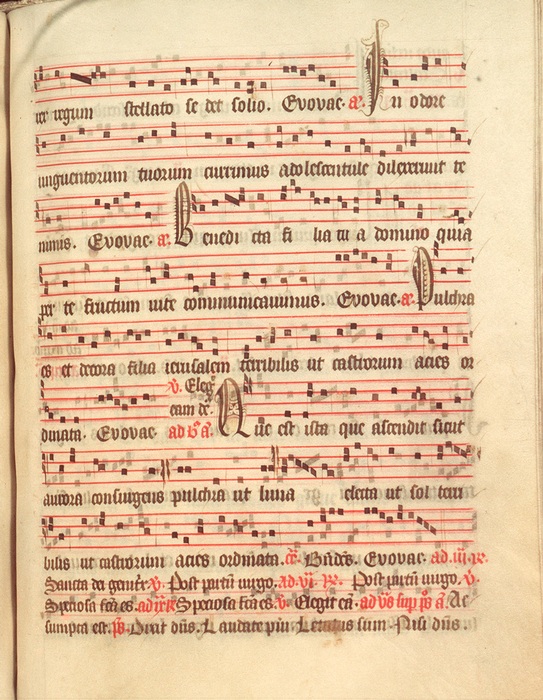 rex regum stellato se det solio. Evovae. a. In odore
unguentorum tuorum currimus adolescentule dilexerunt te
nimis. Evovae. a. Benedi cta fi lia tu a domino quia
per te fructum vite communicavimus. Evovae. a. Pulchra
es et decora filia ierusalem terribilis ut castrorum acies or
v. Eleg
eam de.
dinata. Evovae. ad b. a. Que est ista que ascendit sicut
aurora consurgens pulchra ut luna electa ut sol terri
bilis ut castrorum acies ordinata. Evovae. ad .iij. r.
Sancta dei genitr. v. Post partū virgo. ad .vj. r. Post partū virgo. v.
Speciosa fca es. ad ix r. Speciosa fca es. v. Elegit eā. ad vs sup ps a. As
sumpta est. ps. Dixit dns. Laudate pui. Letatus sum. Nisi dns.